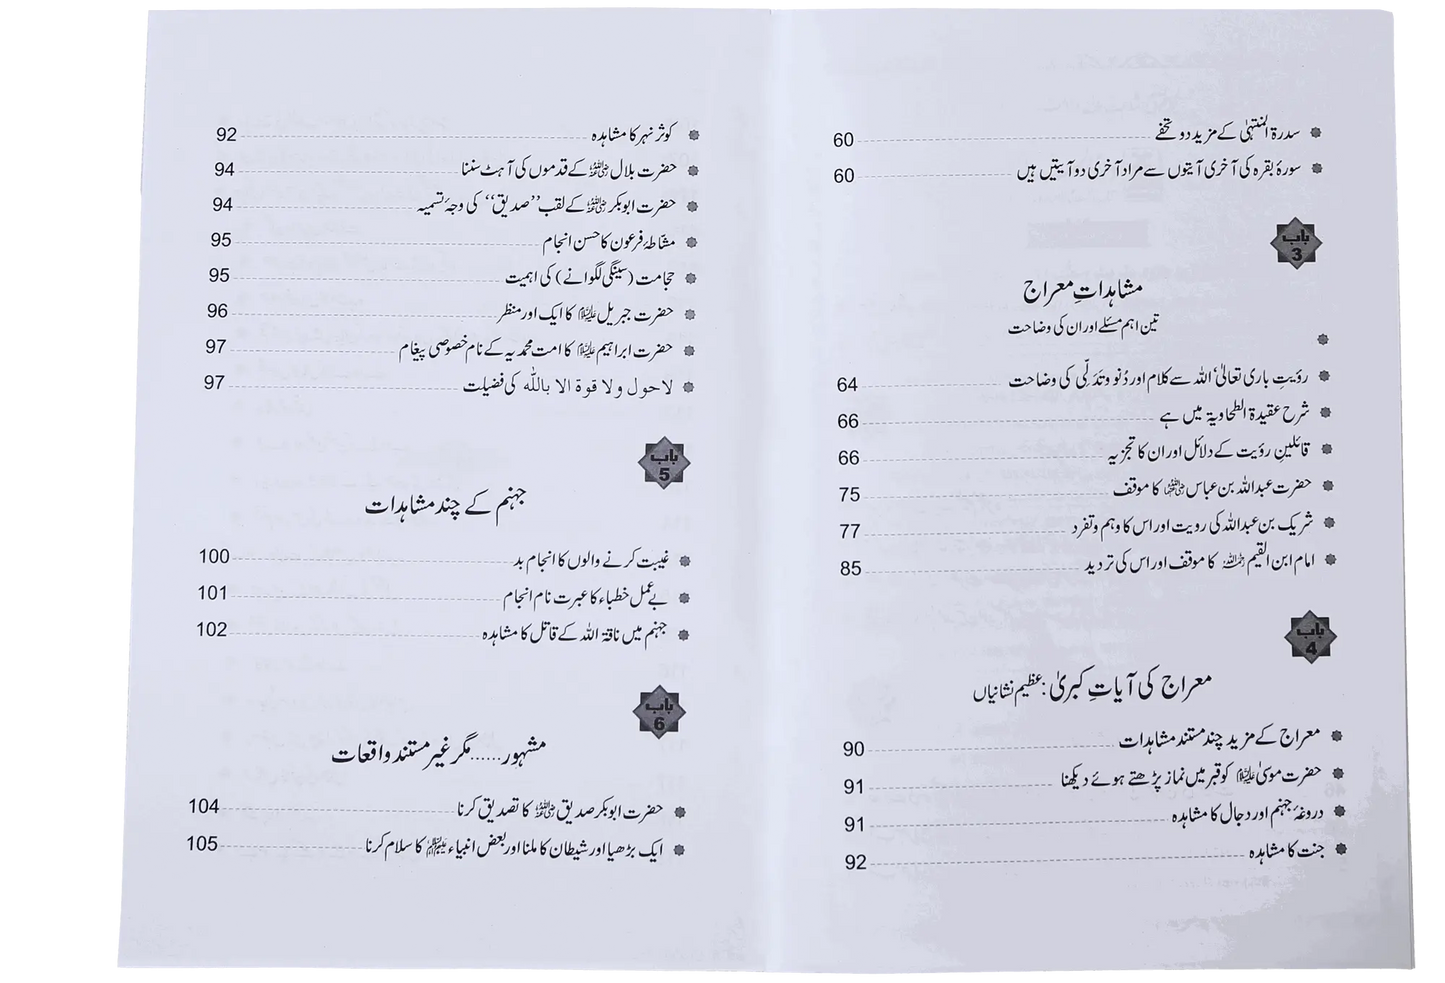 سدرۃ المنتہیٰ کے مزید دو تحفے 60
سورۂ بقرہ کی آخری آیتوں سے مراد آخری دو آیتیں ہیں 60
باب 3
مشاہداتِ معراج
تین اہم مسئلے اور ان کی وضاحت
رؤیتِ باری تعالیٰ‘ اللہ سے کلام اور دُنو وتَدَلِّی کی وضاحت 64
شرح عقیدۃ الطحاویۃ میں ہے 66
قائلینِ رؤیت کے دلائل اور ان کا تجزیہ 66
حضرت عبداللہ بن عباس رضی اللہ عنہما کا موقف 75
شریک بن عبداللہ کی رویت اور اس کا وہم وتفرد 77
امام ابن القیم رحمہ اللہ کا موقف اور اس کی تردید 85
باب 4
معراج کی آیاتِ کبریٰ: عظیم نشانیاں
معراج کے مزید چند مستند مشاہدات 90
حضرت موسیٰ علیہ السلام کو قبر میں نماز پڑھتے ہوئے دیکھنا 91
دروغۂ جہنم اور دجال کا مشاہدہ 91
جنت کا مشاہدہ 92
کوثر نہر کا مشاہدہ 92
حضرت بلال رضی اللہ عنہ کے قدموں کی آہٹ سننا 94
حضرت ابوبکر رضی اللہ عنہ کے لقب ’’صدیق‘‘ کی وجۂ تسمیہ 94
مشّاطۂ فرعون کا حسن انجام 95
حجامت (سینگی لگوانے) کی اہمیت 95
حضرت جبریل علیہ السلام کا ایک اور منظر 96
حضرت ابراہیم علیہ السلام کا امت محمدیہ کے نام خصوصی پیغام 97
لاحول ولا قوۃ الا باللّٰہ کی فضیلت 97
باب 5
جہنم کے چند مشاہدات
غیبت کرنے والوں کا انجام بد 100
بے عمل خطباء کا عبرت نام انجام 101
جہنم میں ناقۃ اللہ کے قاتل کا مشاہدہ 102
باب 6
مشہور......مگر غیر مستند واقعات
حضرت ابوبکر صدیق رضی اللہ عنہ کا تصدیق کرنا 104
ایک بڑھیا اور شیطان کا ملنا اور بعض انبیاء علیہم السلام کا سلام کرنا 105